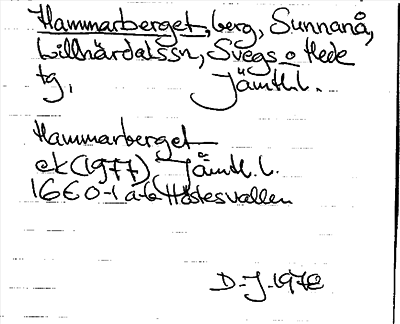 Hammarberget, berg, Sunnanå,
Lillhärdalssn, Svegs o Hede
tg, Jämtl.l.
Hammarberget
ek (1977) Jämtl.l.
16E 0-1 a-b Höstesvallen
D-J-1978